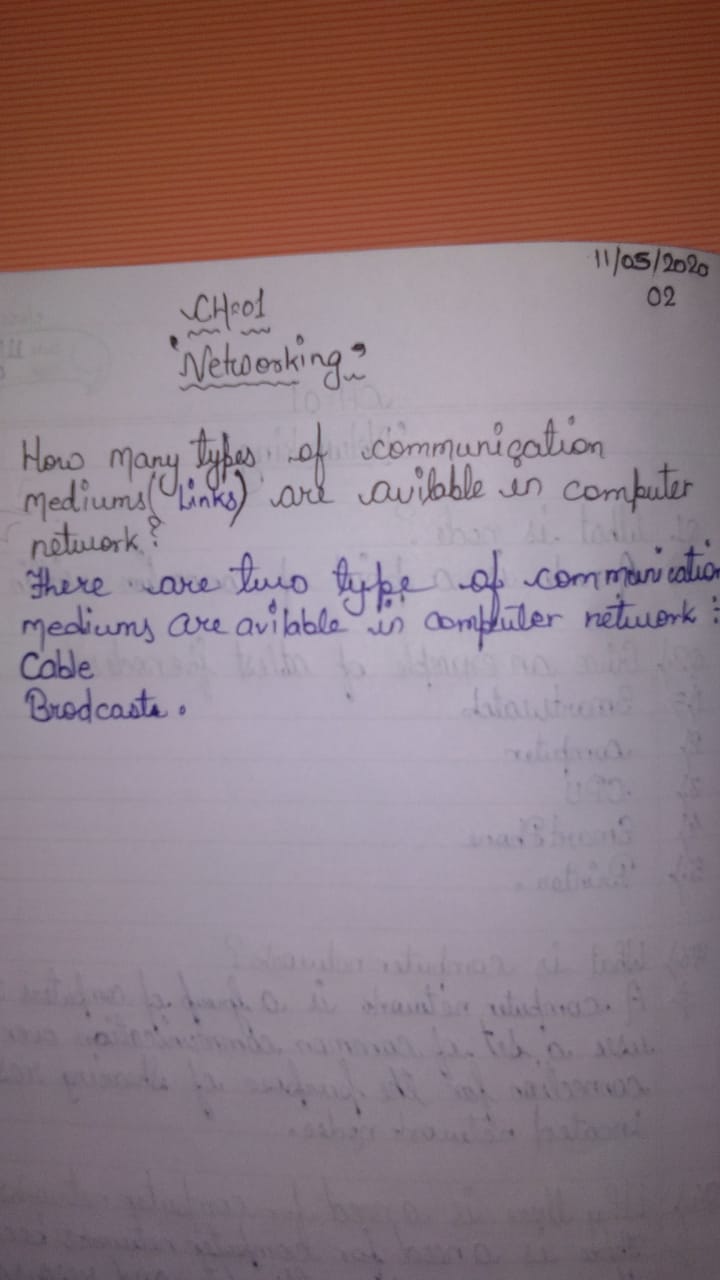 11/05/2020
02
CH:01
"Networking"
How many types of communication
mediums(Links) are avilable in computer
network?
There are two type of communication
mediums are avilable in computer network:
Cable
Brodcasts.